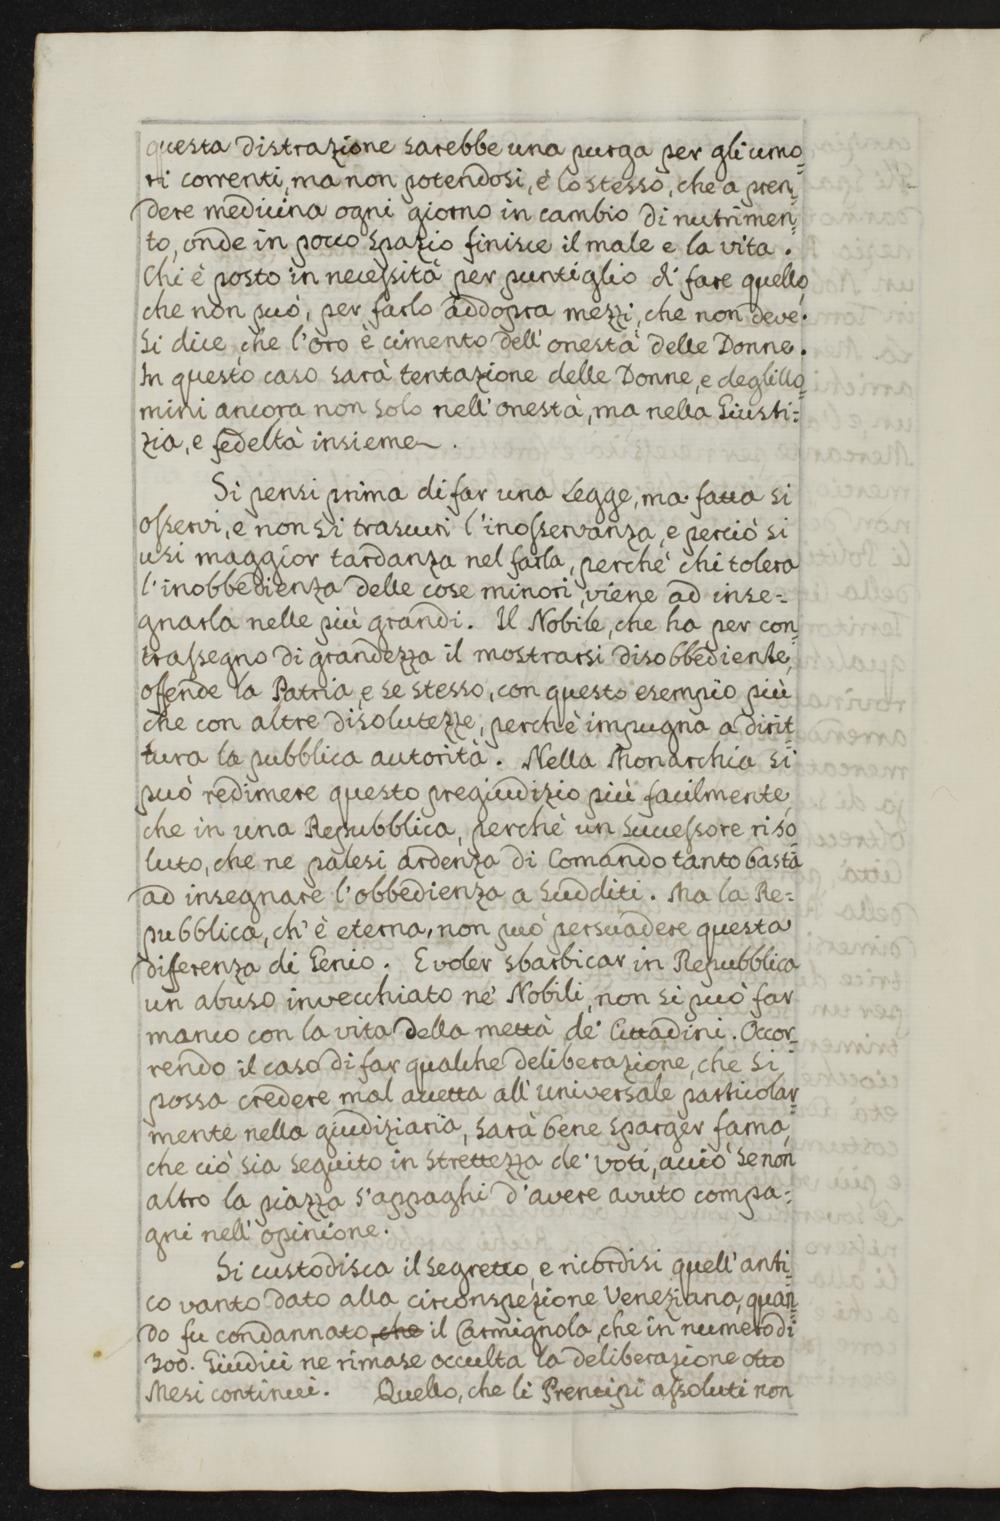 questa distrazione sarebbe una purga per gli umo=
ri correnti, ma non potendosi, è lo stesso, che a pren=
dere medicina ogni giorno in cambio di nutrimen=
to, onde in poco spazio finisce il male e la vita.
Chi è posto in necessità per puntiglio di fare quello,
che non può, per farlo addopra mezzi, che non deve.
Si dice che l'oro è cimento dell'onestà delle Donne.
In questo caso sarà tentazione delle Donne, e degl'Uo=
mini ancora non solo nell'onestà, ma nella Giusti=
zia, e fedeltà insieme.
Si pensi prima di far una Legge, ma fatta si
osservi, e non si trascuri l'inosservanza, e perciò si
usi maggior tardanza nel farla, perchè chi tolera
l'inobbedienza delle cose minori, viene ad inse=
gnarla nelle più grandi. Il Nobile, che ha per con=
trassegno di grandezza il mostrarsi disobbediente,
offende la Patria, e se stesso, con questo esempio più
che con altre disolutezze, perchè impugna a dirit=
tura la pubblica autorità. Nella Monarchia si
può redimere questo pregiudizio più facilmente,
che in una Repubblica, perchè un Successore riso
luto, che ne palesi ardenza di Comando tanto basta
ad insegnare l'obbedienza a Sudditi. Ma la Re=
pubblica, ch'è eterna, non può persuadere questa
diferenza di Genio. E voler sbarbicar in Repubblica
un abuso invecchiato ne' Nobili, non si può far
manco con la vita della mettà de' Cittadini. Occor=
rendo il caso di far qualche deliberazione, che si
possa credere mal accetta all'universale particolar=
mente nella giudiziaria, sarà bene sparger fama,
che ciò sia seguito in strettezza de' voti, acciò se non
altro la piazza s'appaghi d'avere avuto compa=
gni nell'opinione.
Si custodisca il segretto, e ricordisi quell'anti=
co vanto dato alla circonspezione Veneziana, quan=
do fu condannato, che il Carmignola, che in numero di
300. Giudici ne rimase occulta la deliberazione otto
Mesi continui. Quello, che li Prencipi assoluti non